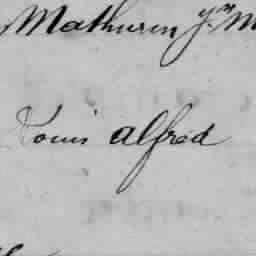 Mathurin
Louis Alfred